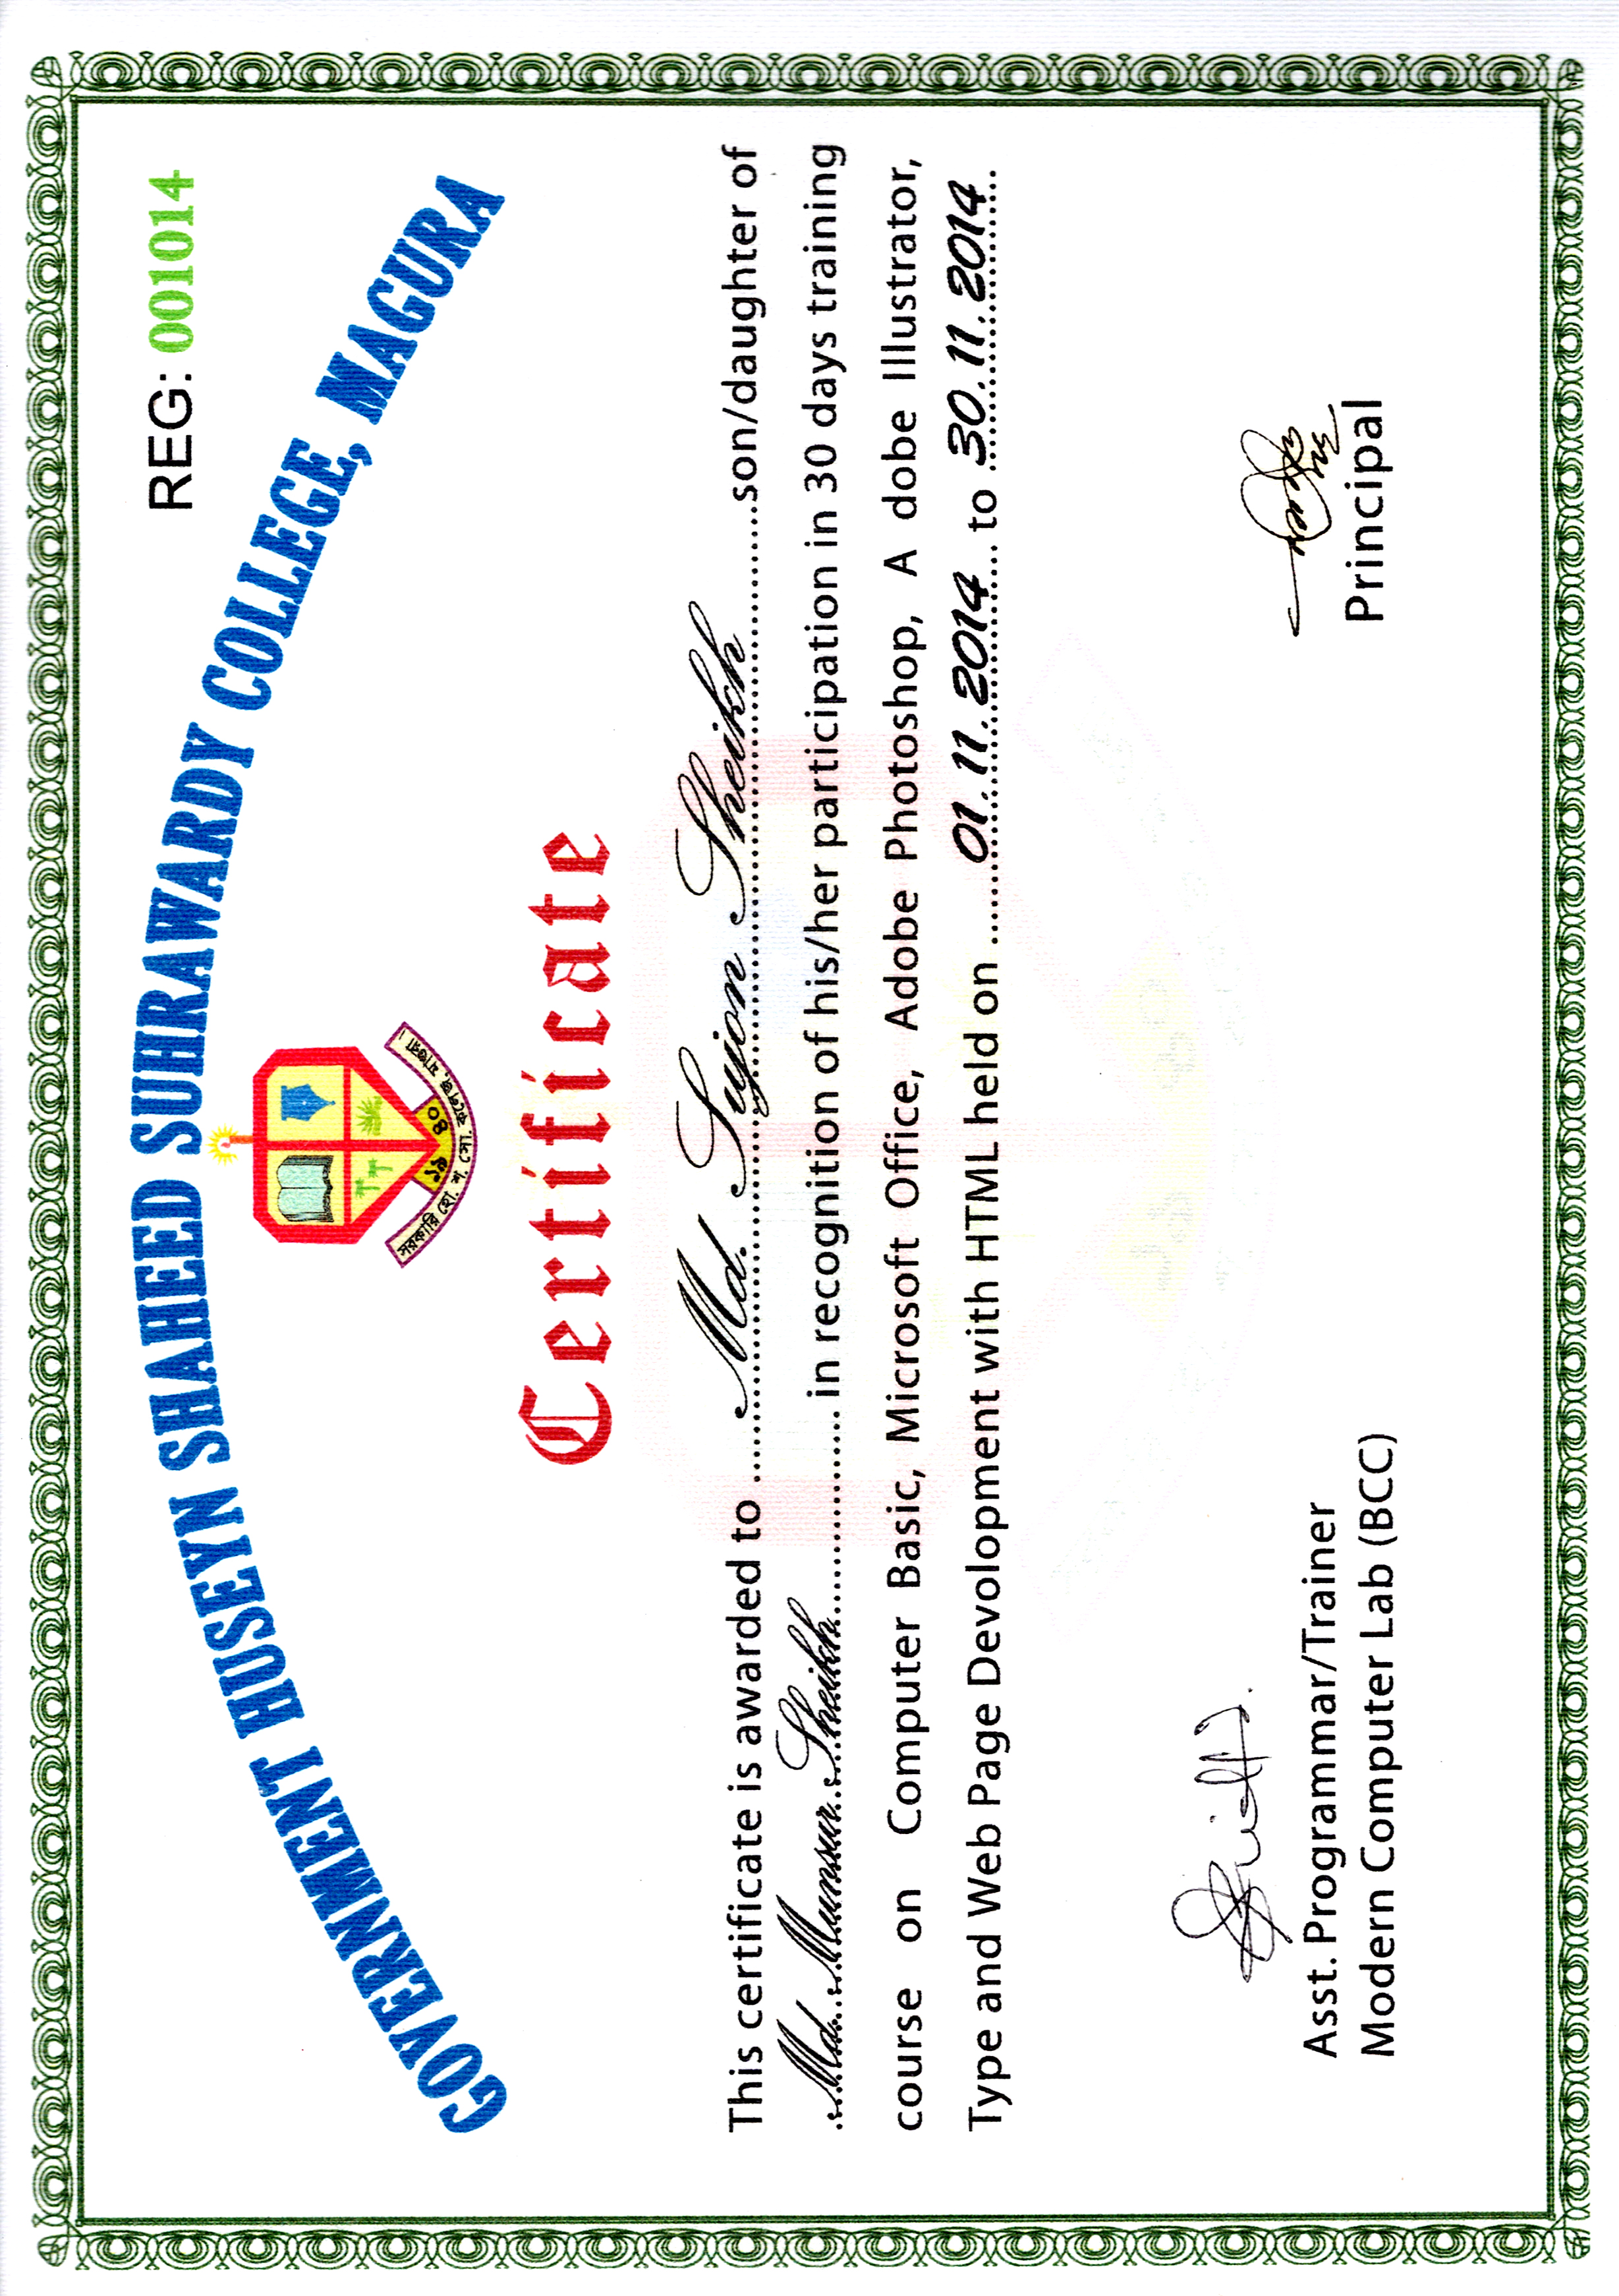 GOVERNMENT HUSEYN SHAHEED SUHRAWARDY COLLEGE, MAGURA
REG: 001014
১৯ ৪০
সরকারি হো. শ. সো. কলেজ, মাগুরা।
Certificate
This certificate is awarded to ......Md. Sujon Sheikh......son/daughter of
Md. Munsur Sheikh.................. in recognition of his/her participation in 30 days training
course on Computer Basic, Microsoft Office, Adobe Photoshop, A dobe Illustrator,
Type and Web Page Devolopment with HTML held on ......01.11.2014... to 30.11.2014
Asst. Programmar/Trainer
Modern Computer Lab (BCC)
Principal